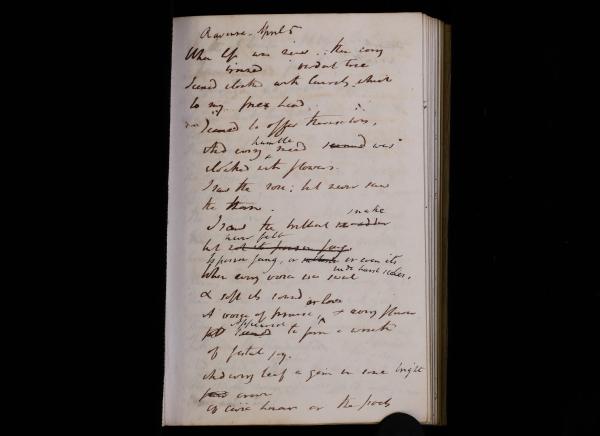 Ravenna. April 5
When life was new .. then every
vernal tree
Seemed clothed with laurels, which
to my free head
Seemed to offer themselves,
humble
And every mead seemed was
clothed with flowers.
I saw the rose: but never saw
the thorn.
snake
I saw the brilliant adder
never felt
but its poison fangs
Its poison fang, or or even its
rude hard scales,
When every voice was sweet
& soft its sound
or love
A voice of promise, & every flower
appeared
seemed to form a wreath
of festal joy.
And every leaf a gem in some bright
crown
Of civic honour or the poets